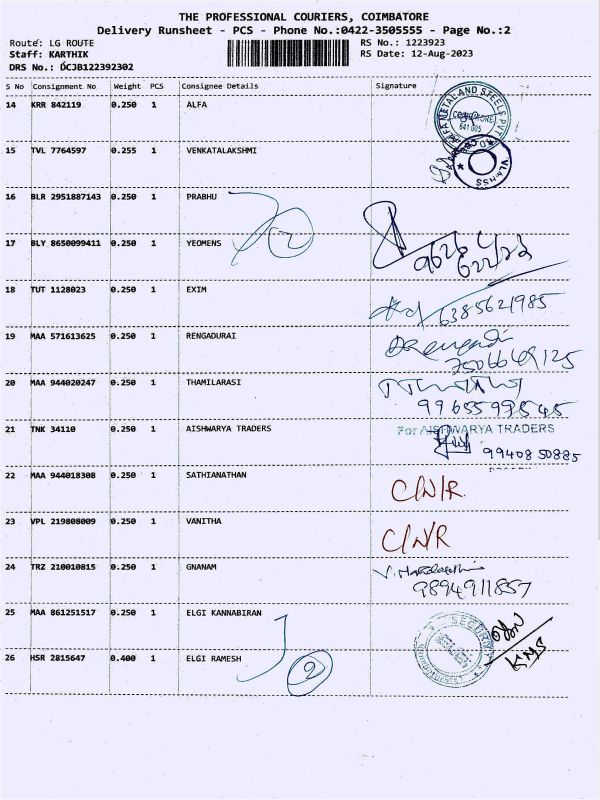 THE PROFESSIONAL COURIERS, COIMBATORE
Delivery Runsheet - PCS - Phone No.:0422-3505555 - Page No.:2
Route: LG ROUTE RS No.: 1223923
Staff: KARTHIK RS Date: 12-Aug-2023
DRS No.: DCJB122392302
S No Consignment No Weight PCS Consignee Details Signature
14 KRR 842119 0.250 1 ALFA
METAL AND STEELS PVT
641 005
15 TVL 7764597 0.255 1 VENKATALAKSHMI
16 BLR 2951887143 0.250 1 PRABHU
2
17 BLY 8650099411 0.250 1 YEOMENS
18 TUT 1128023 0.250 1 EXIM
6385621985
19 MAA 571613625 0.250 1 RENGADURAI
20 MAA 944020247 0.250 1 THAMILARASI
21 TNK 34110 0.250 1 AISHWARYA TRADERS For AISHWARYA TRADERS
99408 50885
22 MAA 944018308 0.250 1 SATHIANATHAN C/N/R
23 VPL 219808009 0.250 1 VANITHA C/N/R
24 TRZ 210010815 0.250 1 GNANAM
9894911857
25 MAA 861251517 0.250 1 ELGI KANNABIRAN SECURITY
26 HSR 2815647 0.400 1 ELGI RAMESH 2 KMS